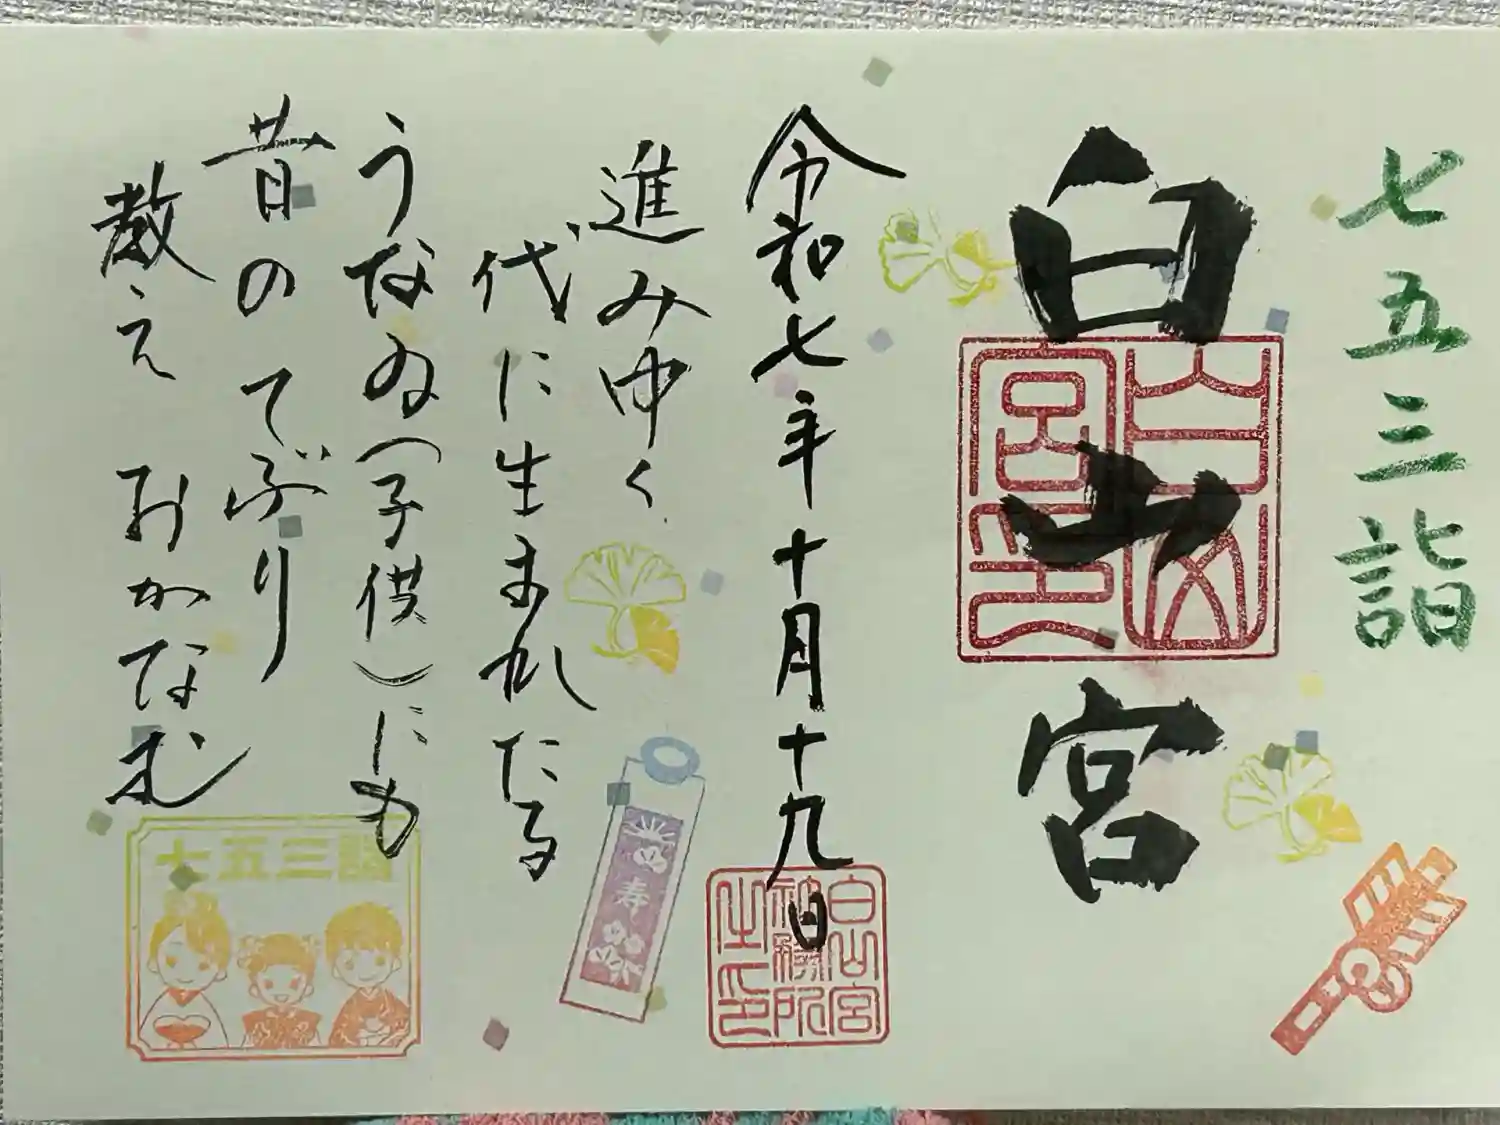 七五三詣
白山宮
白山宮印
令和七年十月十九日
白山宮
社務所
之印
進みゆく
代に生まれたる
うなゐ(子供)にも
昔のてぶり
教えおかなむ
寿
七五三詣